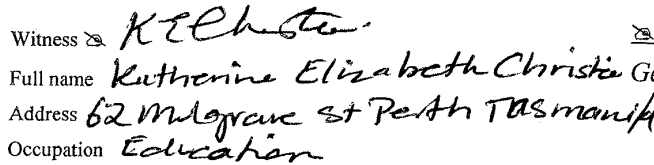 Witness K E Christie
Full name Katherine Elizabeth Christie Ge
Address 62 Mulgrave St Perth TASmania
Occupation Education